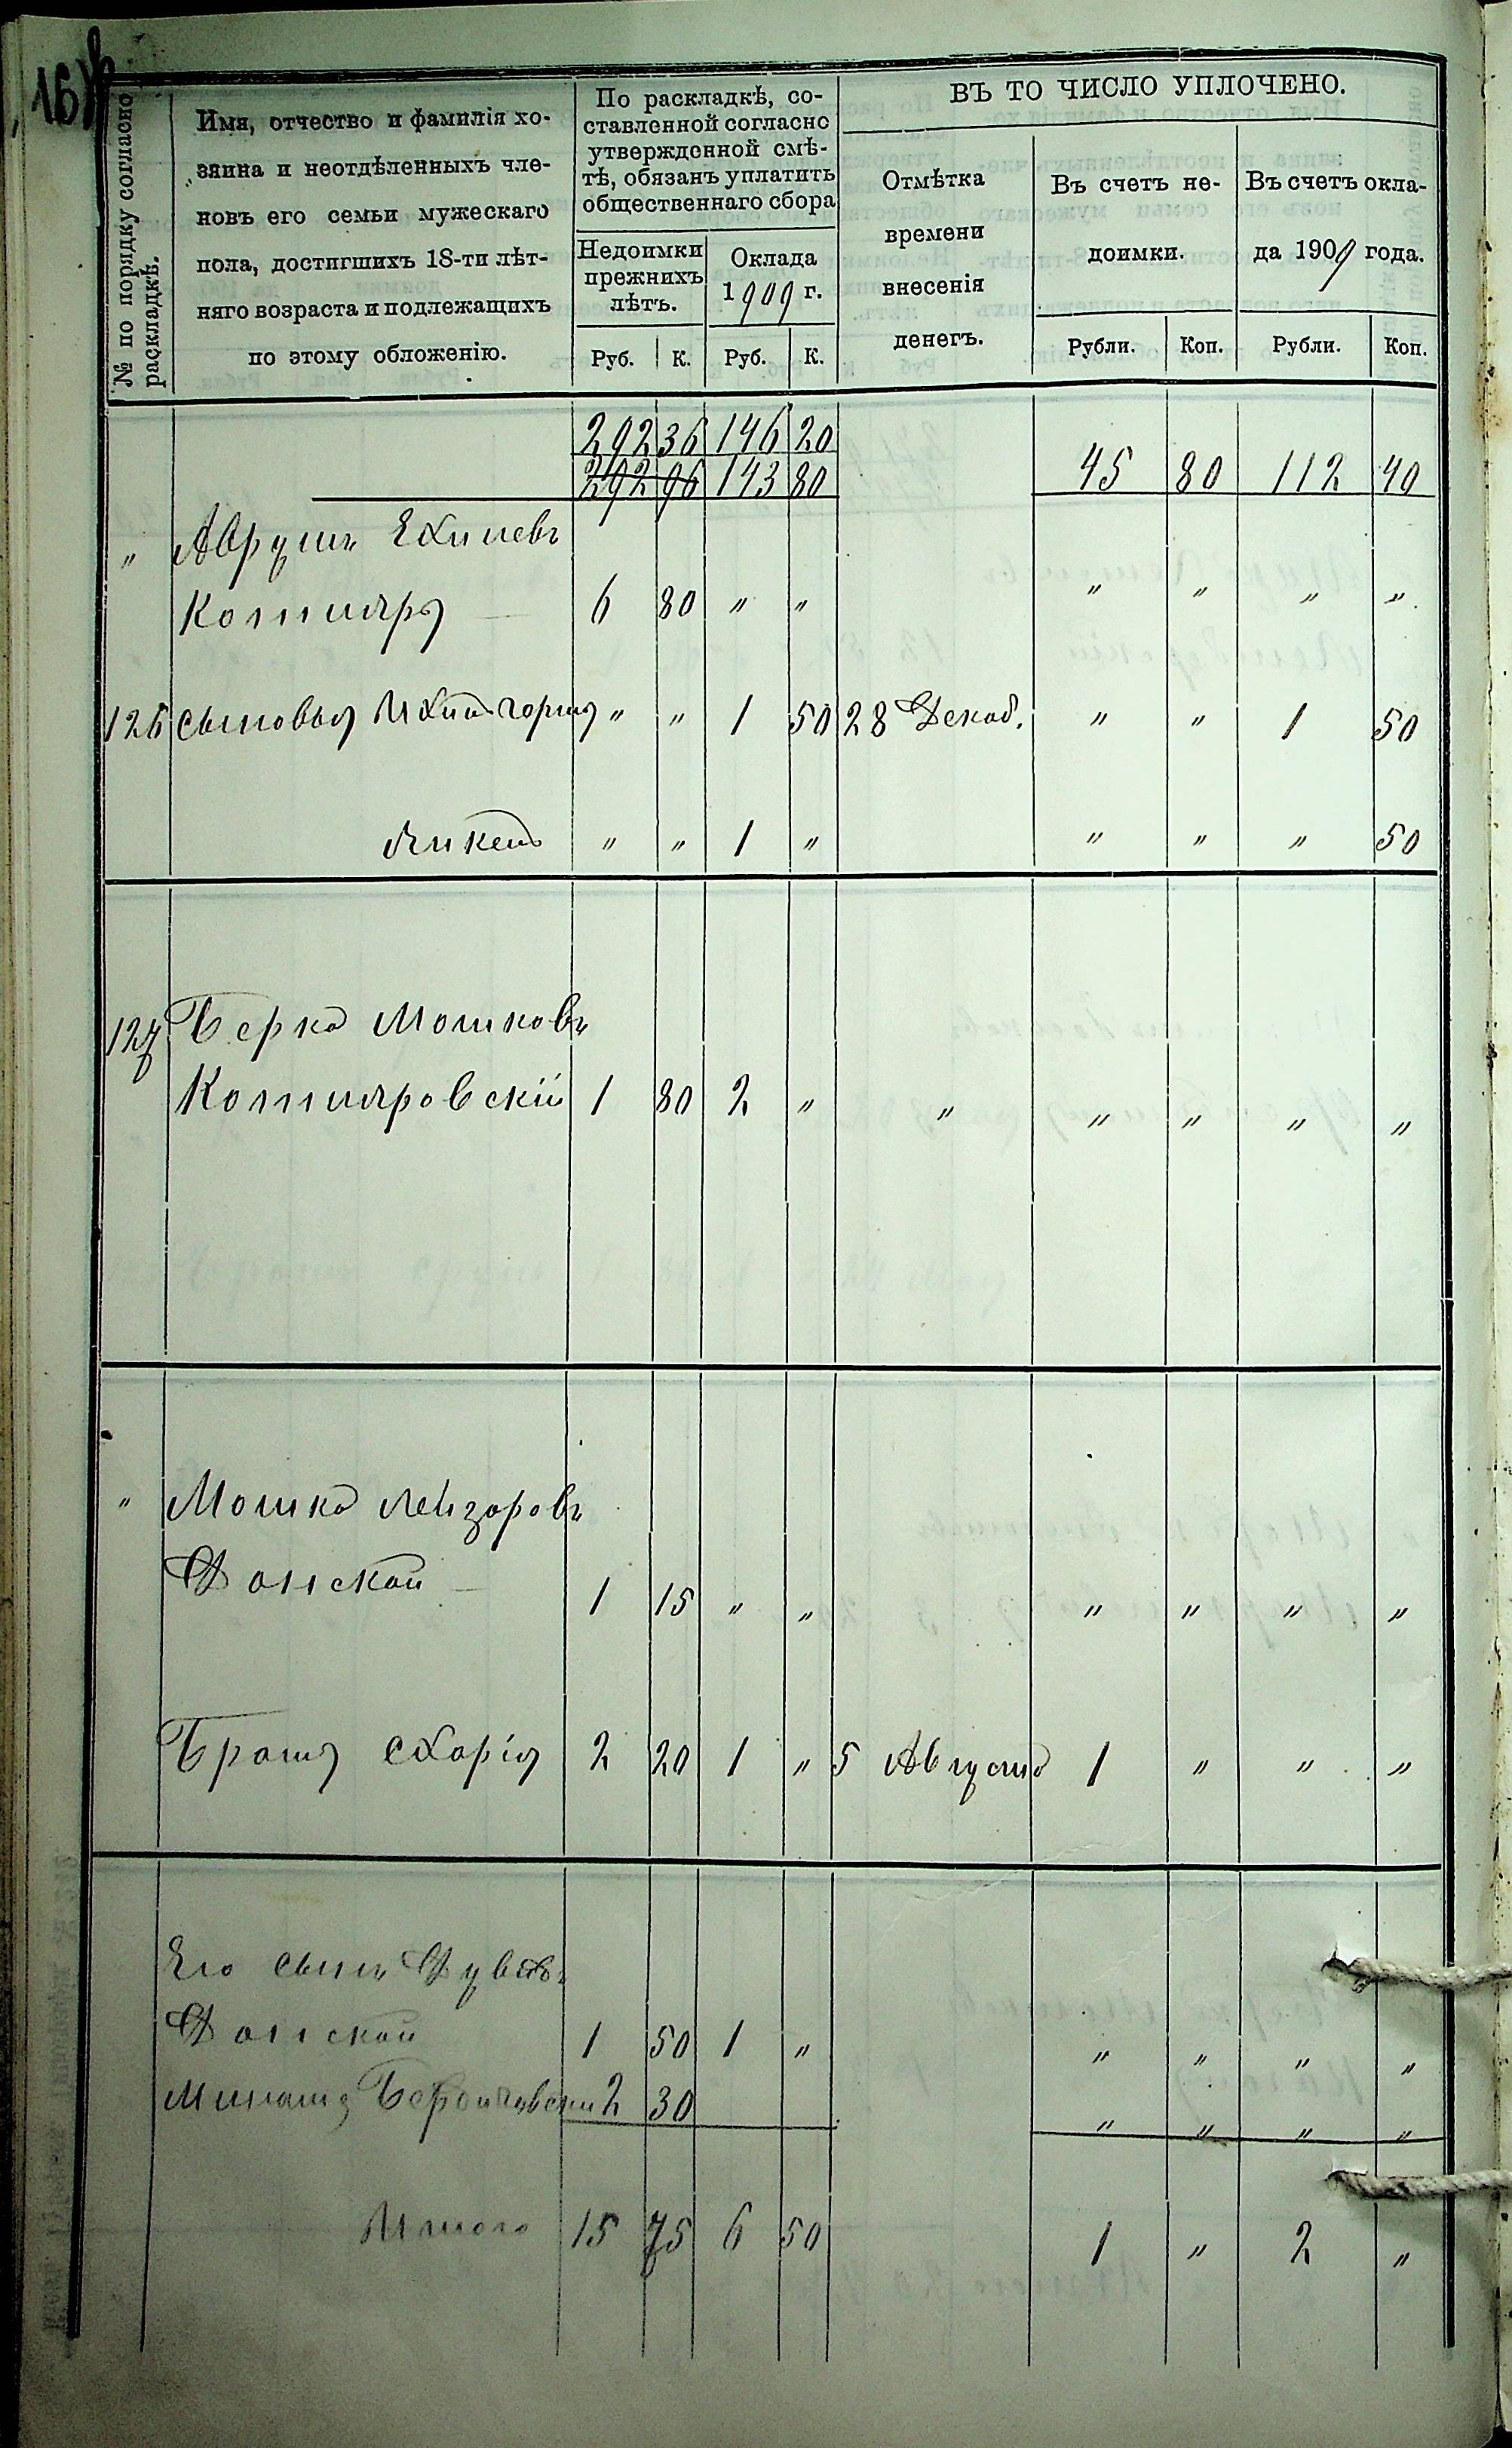 16
№ по порядку согласно раскладкѣ.
Имя, отчество и фамилія хо-
зяина и неотдѣленныхъ чле-
новъ его семьи мужескаго
пола, достигшихъ 18-ти лѣт-
няго возраста и подлежащихъ
по этому обложенію.
По раскладкѣ, со-
ставленной согласно
утвержденной смѣ-
тѣ, обязанъ уплатить
общественнаго сбора
Недоимки
прежнихъ
лѣтъ.
Оклада
1909 г.
Руб. К. Руб. К.
ВЪ ТО ЧИСЛО УПЛОЧЕНО.
Отмѣтка
времени
внесенія
денегъ.
Въ счетъ не-
доимки.
Въ счетъ окла-
да 1909 года.
Рубли. Коп. Рубли. Коп.
292 36 146 20
292 96 143 80 45 80 112 40
" Аврумъ Ехилевъ
Котляръ 6 80 " " " " " "
126 сыновья " " 1 50 28 Декаб. " " 1 50
Янкель " " 1 " " " " 50
127 Берко Мошковъ
Котляровскій 1 80 2 " " " " " "
" Мошко Лейзоровъ
Донской 1 15 " " " " " "
Братъ Схарія 2 20 1 " 5 Августа 1 " " "
Его сынъ
Донской 1 50 1 " " " " "
2 30 " " " "
Итого 15 75 6 50 1 " 2 "